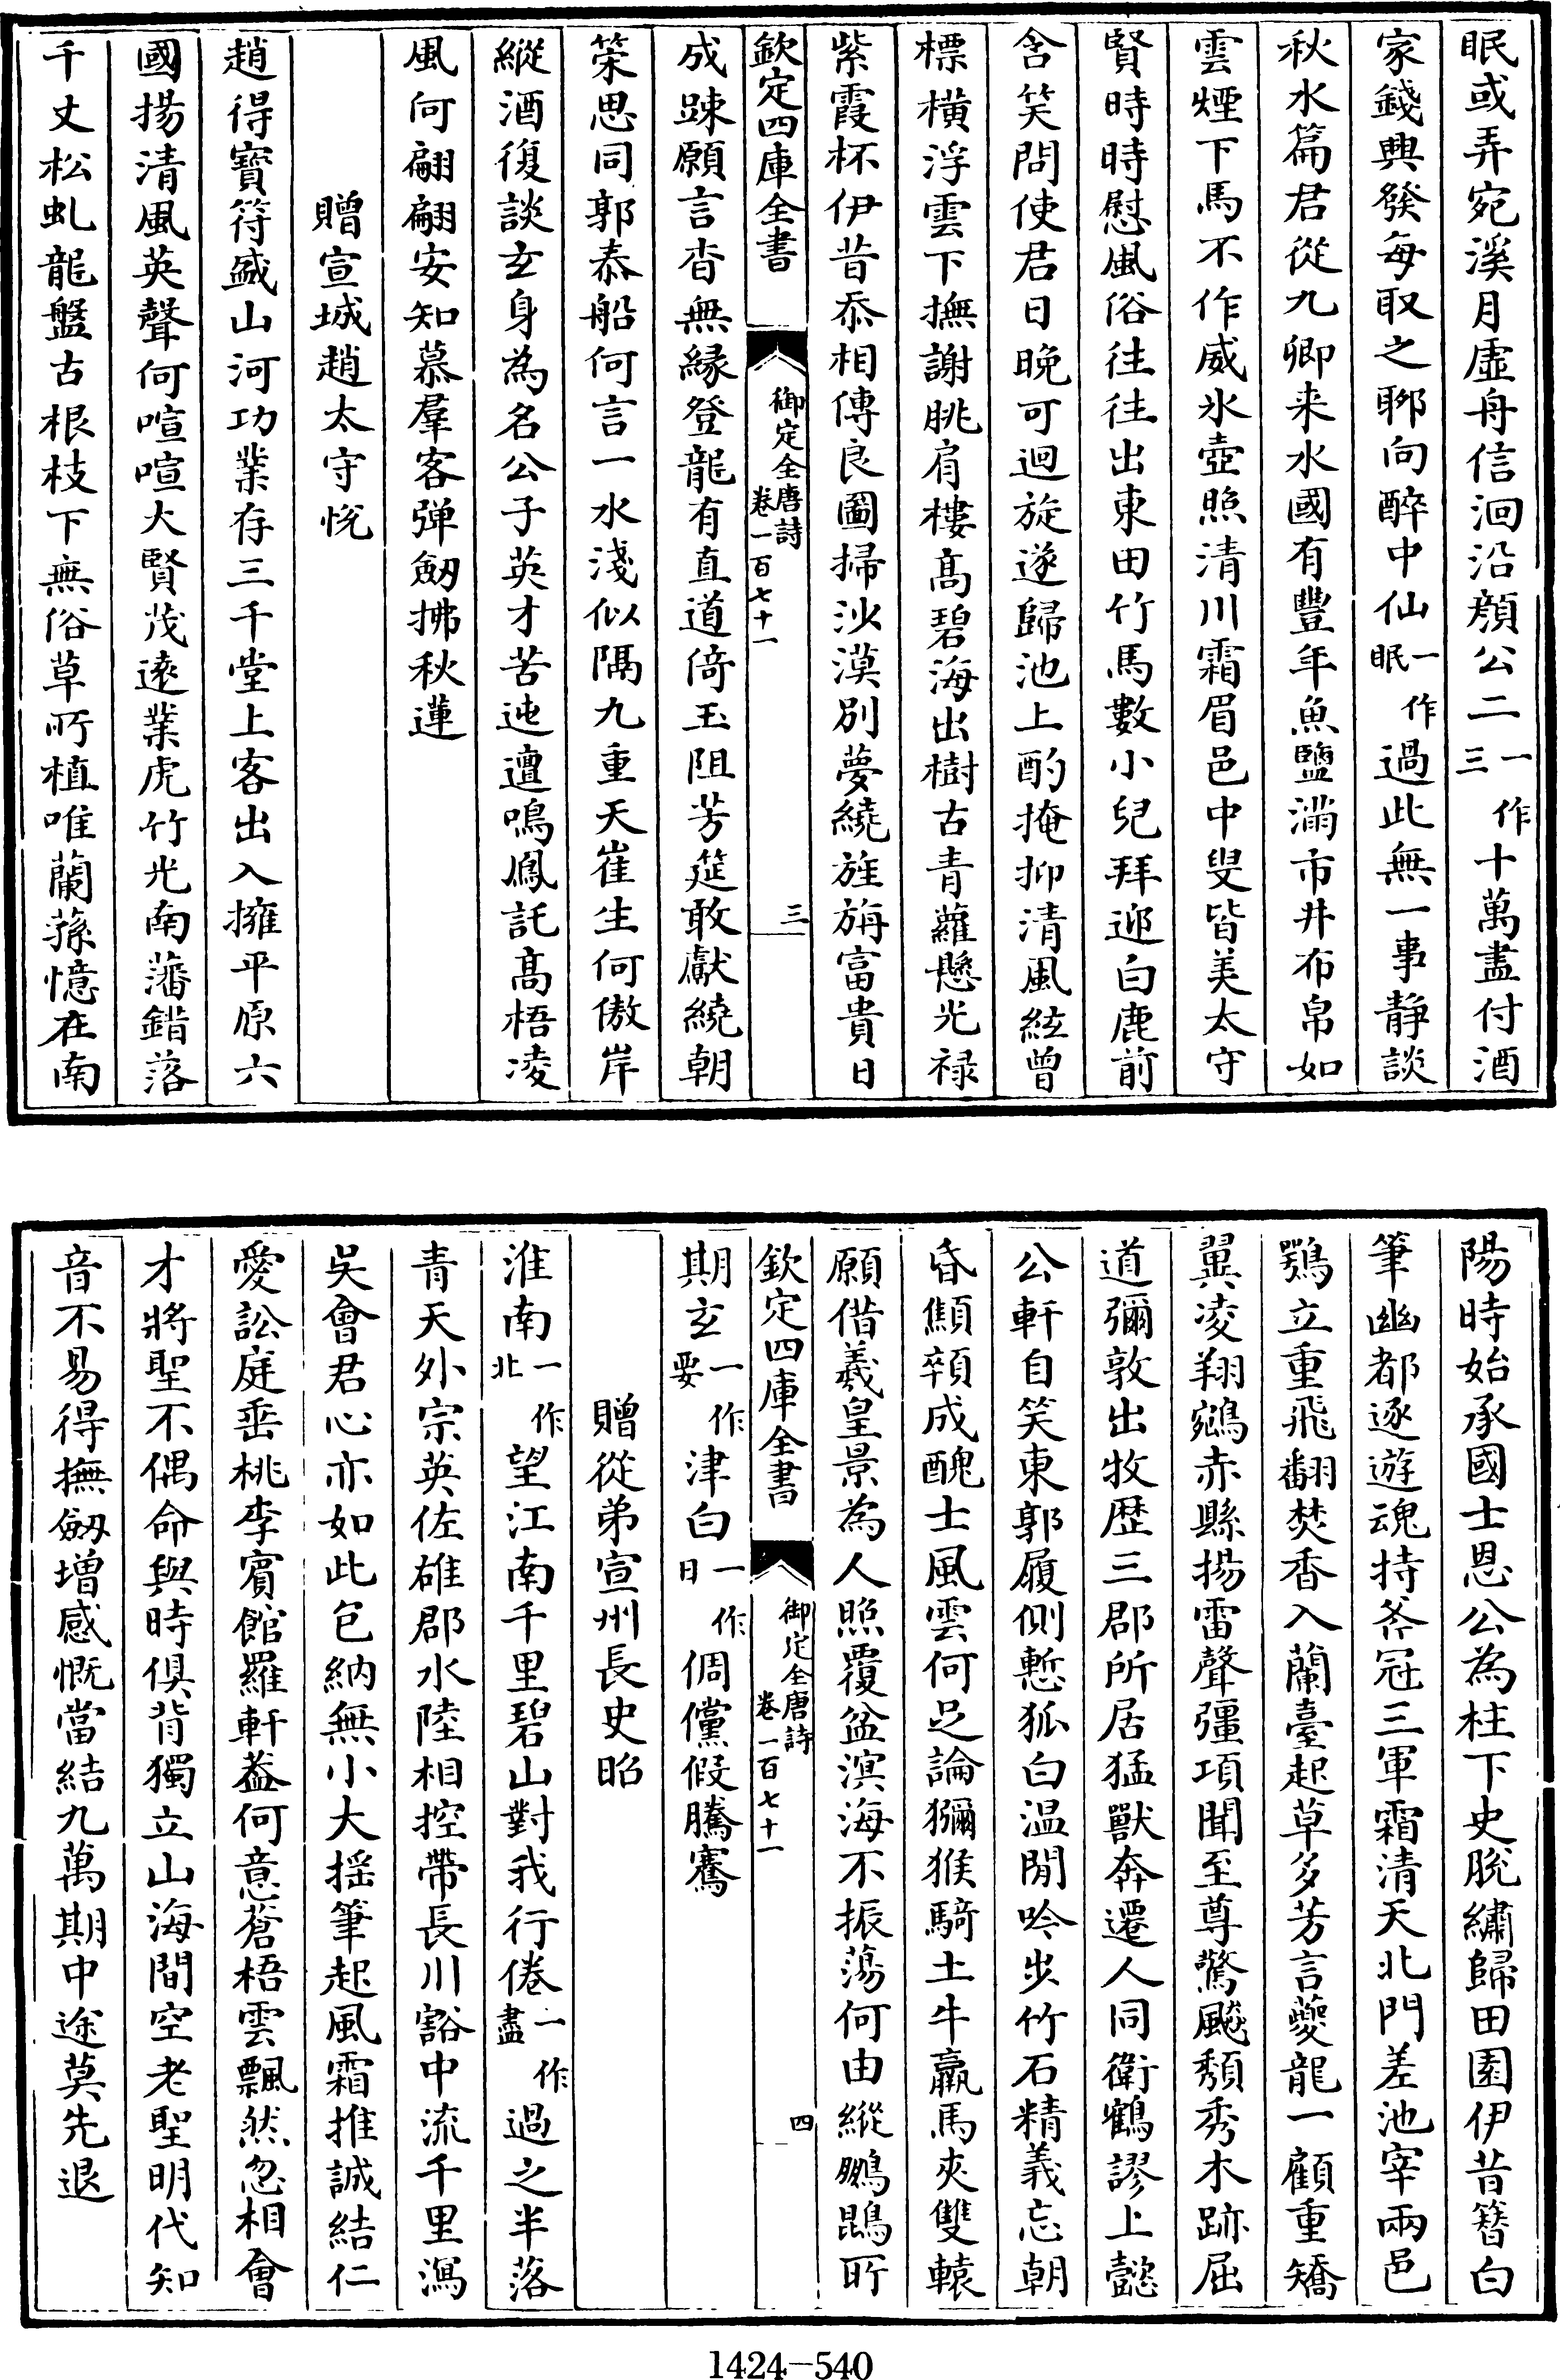 眠或弄宛溪月虛舟信洄沿顔公二一作三十萬盡付酒
家錢興發每取之聊向醉中仙一作眠過此無一事靜談
秋水篇君從九卿来水國有豐年魚鹽滿市井布帛如
雲煙下馬不作威氷壺照清川霜眉邑中叟皆美太守
賢時時慰風俗往往出東田竹馬數小兒拜迎白鹿前
含笑問使君日晚可迴旋遂歸池上酌掩抑清風絃曾
標橫浮雲下撫謝朓肩樓髙碧海出樹古青蘿懸光禄
紫霞杯伊昔忝相傳良圖掃沙漠別夢繞旌旃富貴日
欽定四庫全書 御定全唐詩 卷一百七十一 三
成踈願言杳無縁登龍有直道倚玉阻芳筵敢獻繞朝
策思同郭泰船何言一水淺似隔九重天崔生何傲岸
縱酒復談玄身為名公子英才苦迍邅鳴鳳託髙梧凌
風何翩翩安知慕羣客弾劒拂秋蓮
贈宣城趙太守恱
趙得寶符盛山河功業存三千堂上客出入擁平原六
國揚清風英聲何喧喧大賢茂遠業虎竹光南藩錯落
千丈松虬龍盤古根枝下無俗草所植唯蘭蓀憶在南
陽時始承國士恩公為柱下史脫繡歸田園伊昔簪白
筆幽都逐遊魂持斧冠三軍霜清天北門差池宰兩邑
鶚立重飛翻焚香入蘭臺起草多芳言夔龍一顧重矯
翼凌翔鵷赤縣揚雷聲彊項聞至尊驚飈頽秀木跡屈
道彌敦出牧歴三郡所居猛獸奔遷人同衛鶴謬上懿
公軒自笑東郭履側慙狐白温閒吟步竹石精義忘朝
昏顦顇成醜士風雲何足論獼猴騎土牛羸馬夾雙轅
願借羲皇景為人照覆盆溟海不振蕩何由縱鵬鵾所
欽定四庫全書 御定全唐詩 卷一百七十一 四
期玄一作要津白一作日倜儻假騰騫
贈從弟宣州長史昭
淮南一作北望江南千里碧山對我行倦一作盡過之半落
青天外宗英佐雄郡水陸相控帶長川豁中流千里瀉
吳會君心亦如此包納無小大揺筆起風霜推誠結仁
愛訟庭垂桃李賔館羅軒葢何意蒼梧雲飄然忽相會
才將聖不偶命與時俱背獨立山海間空老聖明代知
音不易得撫劒增感慨當結九萬期中途莫先退
1424-540